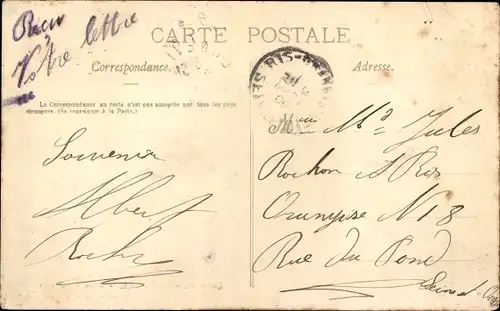 Recu
Votre lettre
CARTE POSTALE
Correspondance.
Adresse.
La Correspondance au recto n'est pas acceptée par tous les pays
étrangers. (Se renseigner à la Poste).
RIS-
Souvenir
Albert
Mme Jules
Rochon A Ris
Orangise N 18
Rue du Pond
Seine et